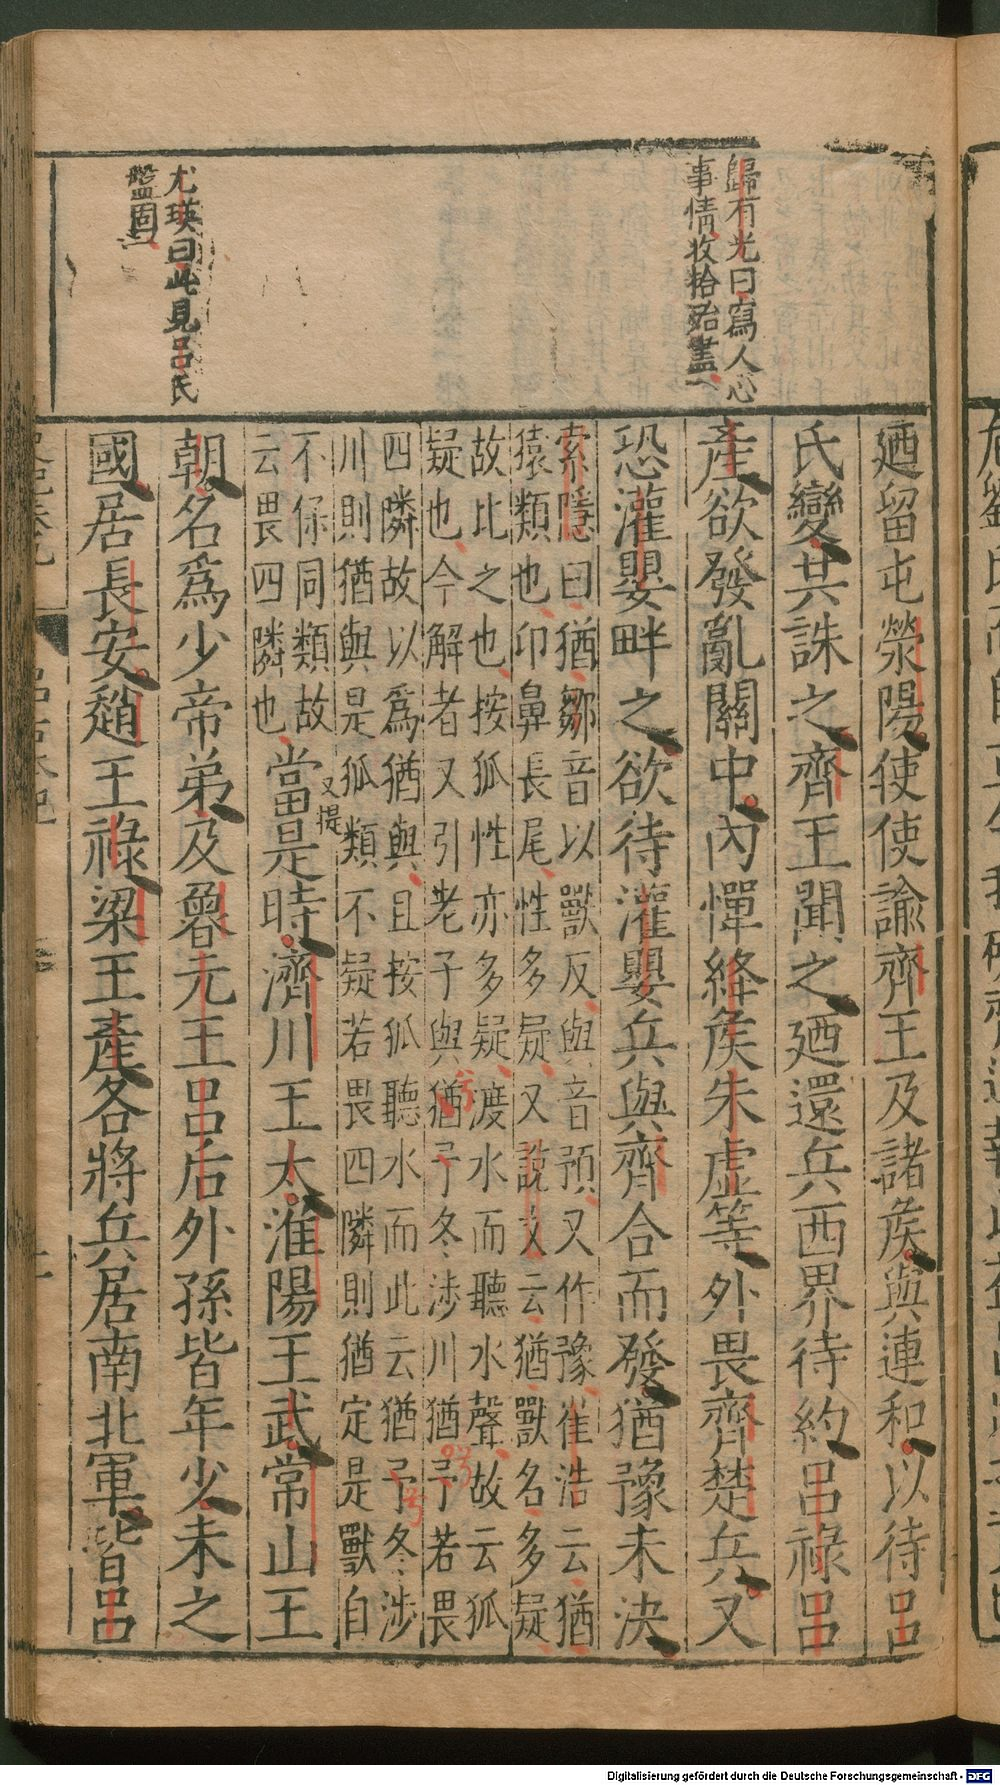 歸有光曰寫人心
事情收拾殆盡
尤瑛曰此見呂氏
盤固
廼留屯滎陽使使諭齊王及諸矦與連和以待呂
氏變共誅之齊王聞之廼還兵西界待約呂祿呂
產欲發亂關中內憚絳矦朱虛等外畏齊楚兵又
恐灌嬰畔之欲待灌嬰兵與齊合而發猶豫未決
索隱曰猶鄒音以獸反與音預又作豫崔浩云猶
猿類也卬鼻長尾性多疑又說文云猶獸名多疑
故比之也按狐性亦多疑渡水而聽水聲故云狐
疑也今解者又引老子與猶予冬涉川猶予若畏
四隣故以爲猶與且按狐聽水而此云猶予冬涉
川則猶與是狐類不疑若畏四隣則猶定是獸自
不保同類故
云畏四隣也
又提
當是時濟川王太淮陽王武常山王
朝名爲少帝弟及魯元王呂后外孫皆年少未之
國居長安趙王祿梁王產各將兵居南北軍皆呂
Digitalisierung gefördert durch die Deutsche Forschungsgemeinschaft - DFG